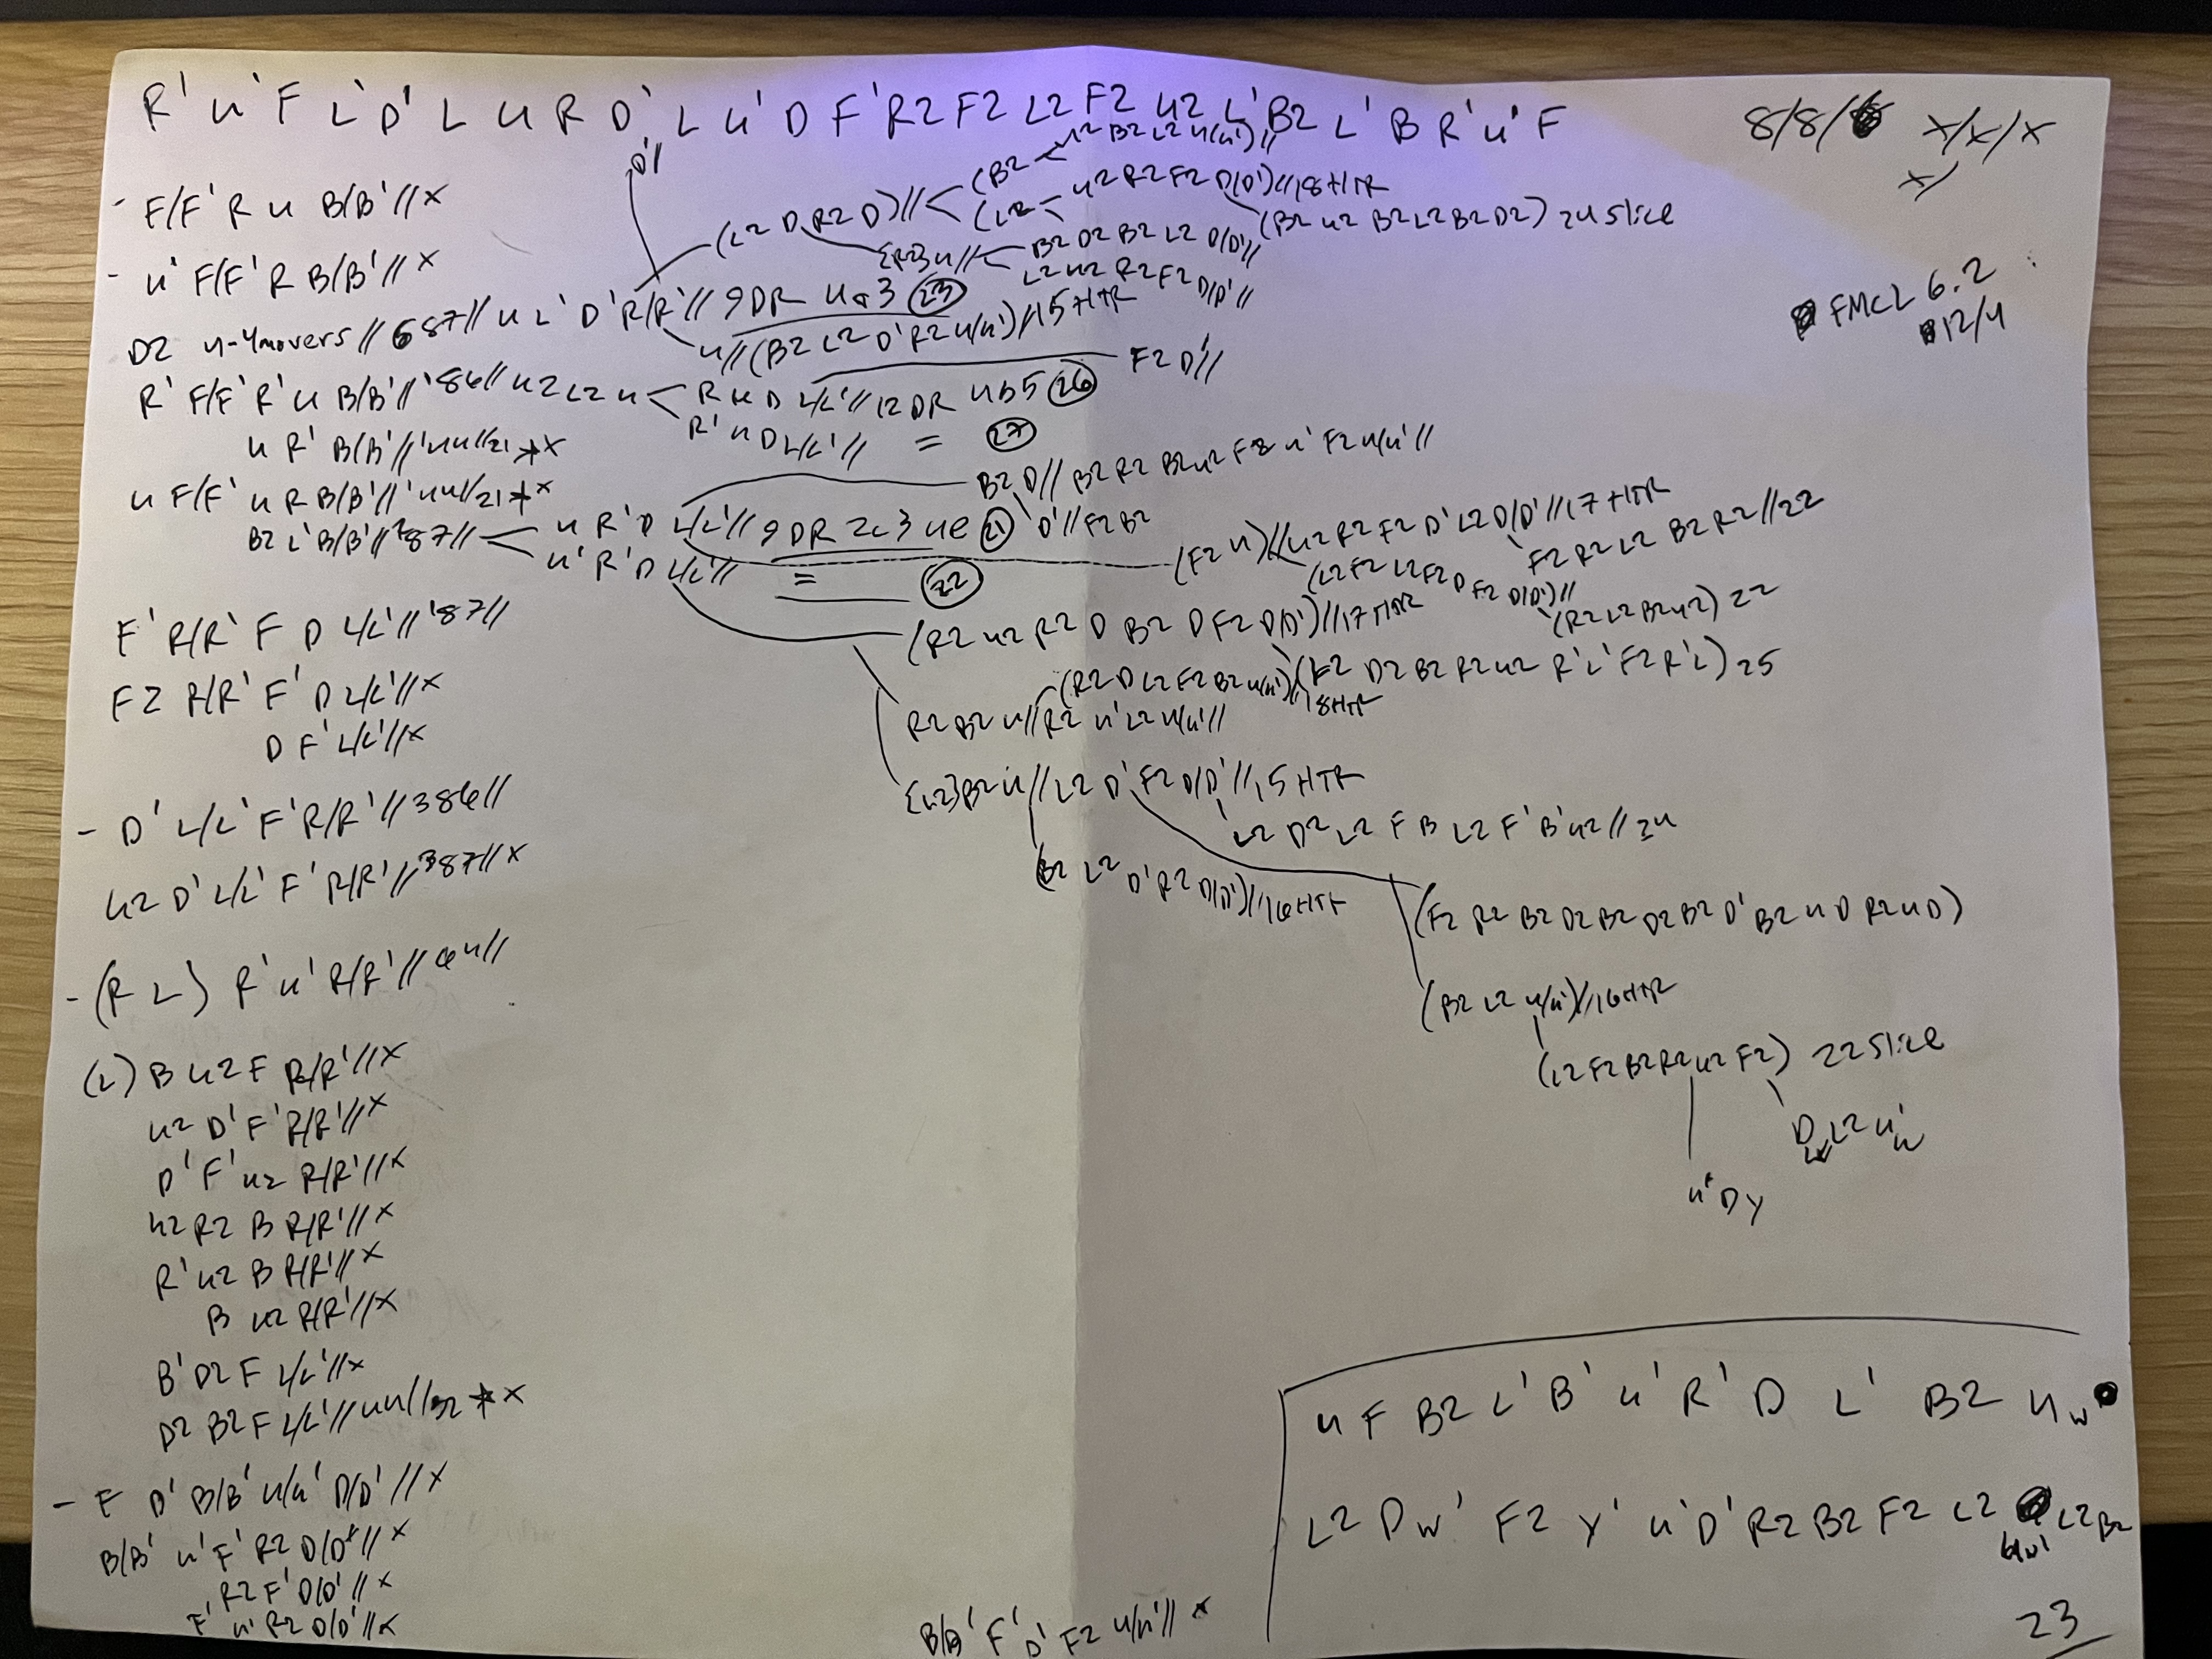 R' U' F L' D' L U R D' L U' D F' R2 F2 L2 F2 U2 L' B2 L' B R' U' F
8/8/8 x/x/x
x/
D'//
- F/F' R U B/B' // x
(L2 D R2 D) //< (B2 < U2 B2 L2 U(U') //
(L2 < U2 R2 F2 D(D') // 18 HTR
(B2 U2 B2 L2 B2 D2) 24 slice
- U' F/F' R B/B' // x
{R2} U //< B2 D2 B2 L2 D(D') //
L2 U2 R2 F2 D/D' //
FMCL 6.2
12/4
D2 4-4movers // 687 // U L' D' R/R' // 9DR 4a3 (23)
U // (B2 L2 D' R2 U/U') // 15 HTR
R' F/F' R' U B/B' // '86 // U2 L2 U < R U D L/L' // 12 DR 4b5 (26) F2 D' //
R' U D L/L' // = (27)
U R' B/B' // '44 // 21 * x
U F/F' U R B/B' // '44 // 21 * x
B2 L' B/B' // 287 // < U R' D L/L' // 9DR 2c3 4e (21)
B2 D // B2 R2 B2 U2 F2 U' F2 U/U' //
D' // F2 B2
U' R' D L/L' // = (22)
(F2 U) // U2 R2 F2 D' L2 D/D' // 17 HTR
F2 R2 L2 B2 R2 // 22
(L2 F2 L2 F2 D F2 D(D') //
(R2 L2 B2 U2) 22
F' R/R' F D L/L' // '87 //
(R2 U2 R2 D B2 D F2 D(D') // 17 HTR
(F2 D2 B2 R2 U2 R' L' F2 R' L) 25
F2 R/R' F' D L/L' // x
(R2 D L2 F2 B2 U(U') // 18 HTR
R2 B2 U // R2 U' L2 U/U' //
D F' L/L' // x
{U2} B2 U // L2 D' F2 D/D' // 15 HTR
L2 D2 L2 F B L2 F' B' U2 // 24
- D' L/L' F' R/R' // 386 //
(B2 L2 D' R2 D(D') // 16 HTR
U2 D' L/L' F' R/R' // 387 // x
(F2 R2 B2 D2 B2 D2 B2 D' B2 U D R2 U D)
- (R L) R' U' R/R' // 44 //
(B2 L2 U/U') // 16 HTR
(L2 F2 B2 R2 U2 F2) 22 slice
Dw L2 Uw'
U' D y
(L) B U2 F R/R' // x
U2 D' F' R/R' // x
D' F' U2 R/R' // x
U2 R2 B R/R' // x
R' U2 B R/R' // x
B U2 R/R' // x
B' D2 F L/L' // x
D2 B2 F L/L' // 44 // 32 * x
- F D' B/B' U/U' D/D' // x
B/B' U' F' R2 D/D' // x
R2 F' D/D' // x
F' U' R2 D/D' // x
B/B' F' D' F2 U/U' // x
U F B2 L' B' U' R' D L' B2 Uw
L2 Dw' F2 y' U' D' R2 B2 F2 L2 L2 B2
23